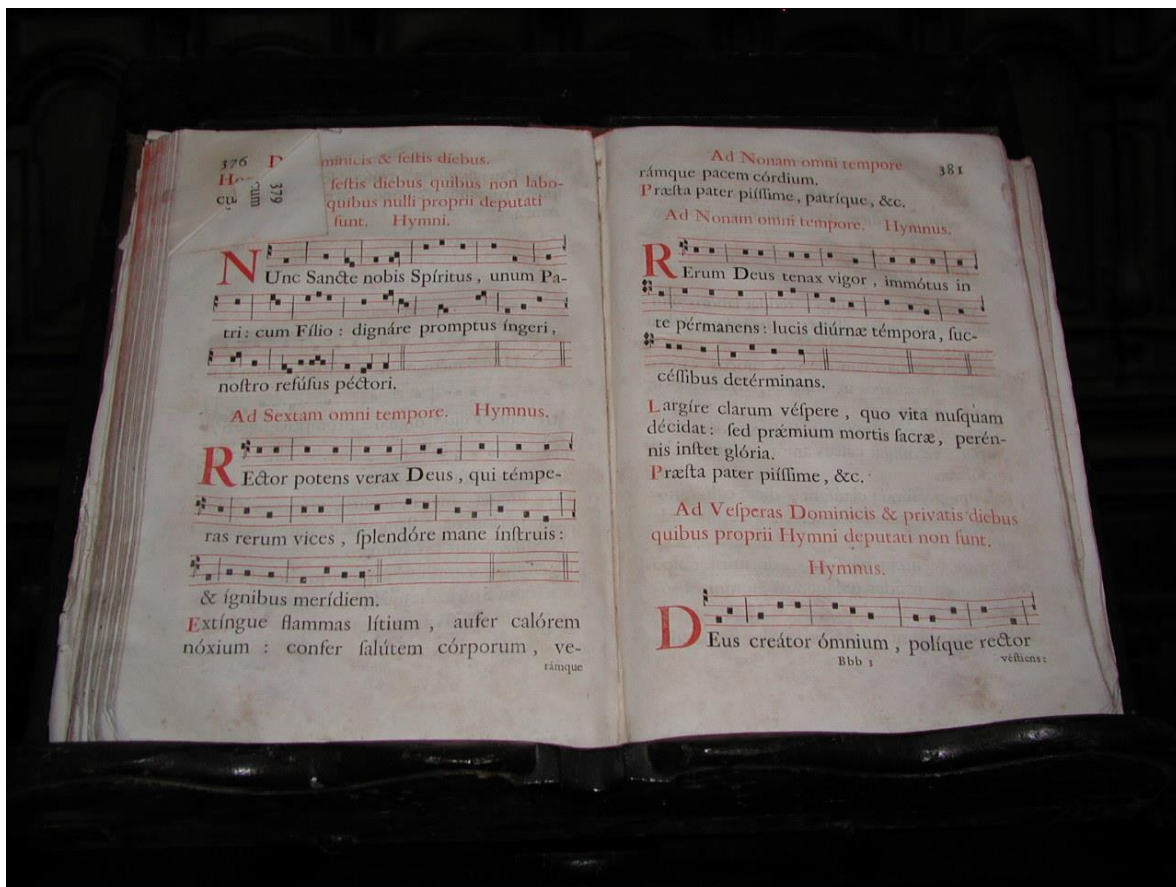 376 minicis & feſtis diebus.
feſtis diebus quibus non labo-
379
cum
quibus nulli proprii deputati
ſunt. Hymni.
NUnc Sancte nobis Spíritus, unum Pa-
tri: cum Fílio: dignáre promptus íngeri,
noſtro refúſus péctori.
Ad Sextam omni tempore. Hymnus.
REctor potens verax Deus, qui témpe-
ras rerum vices, ſplendóre mane ínſtruis:
& ígnibus merídiem.
Extíngue flammas lítium, aufer calórem
nóxium: confer ſalútem córporum, ve-
rámque
Ad Nonam omni tempore 381
rámque pacem córdium.
Præſta pater piíſſime, patríque, &c.
Ad Nonam omni tempore. Hymnus.
RErum Deus tenax vigor, immótus in
te pérmanens: lucis diúrnæ témpora, ſuc-
céſſibus detérminans.
Largíre clarum véſpere, quo vita nuſquam
décidat: ſed prǽmium mortis ſacræ, perén-
nis inſtet glória.
Præſta pater piíſſime, &c.
Ad Veſperas Dominicis & privatis diebus
quibus proprii Hymni deputati non ſunt.
Hymnus.
DEus creátor ómnium, políque rector
Bbb 3 véſtiens: